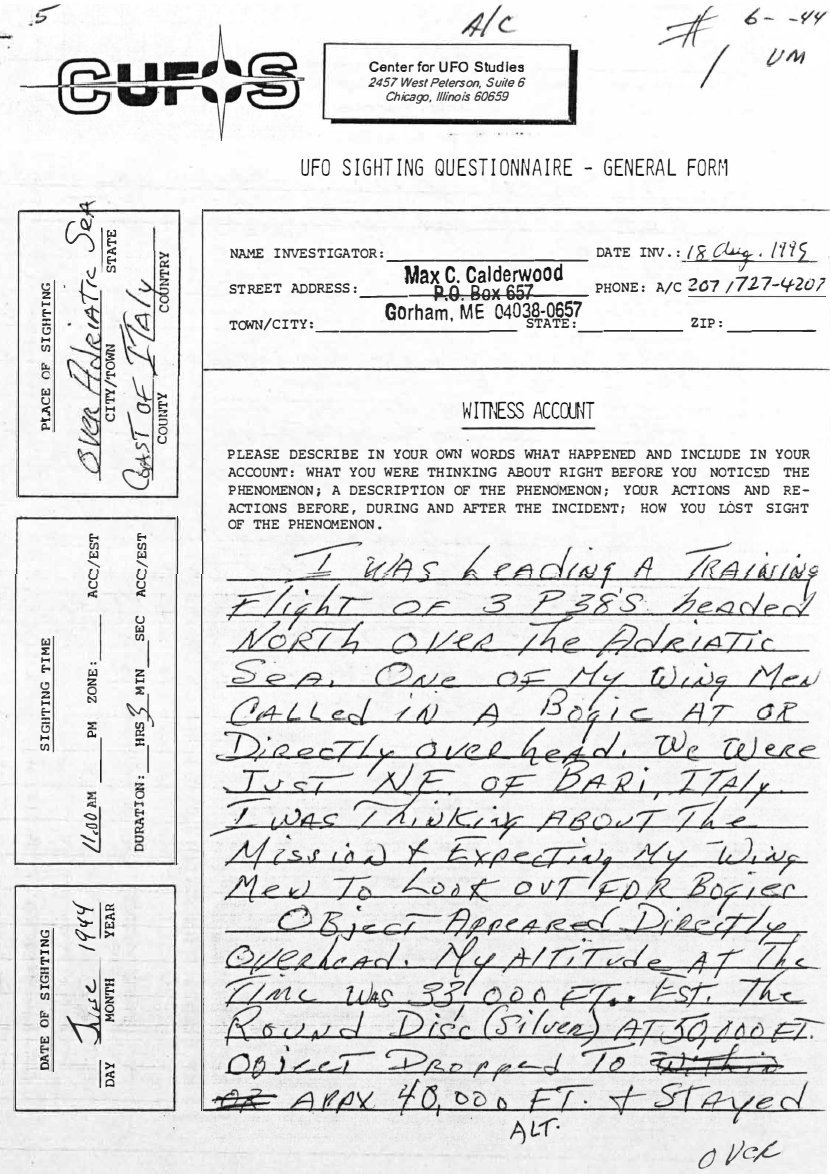 .5
A/C
# 6- -44
1 UM
CUFOS
Center for UFO Studies
2457 West Peterson, Suite 6
Chicago, Illinois 60659
UFO SIGHTING QUESTIONNAIRE - GENERAL FORM
PLACE OF SIGHTING
OVER ADRIATIC SEA
CITY/TOWN STATE
COAST OF ITALY
COUNTY COUNTRY
NAME INVESTIGATOR: DATE INV.: 18 Aug. 1995
STREET ADDRESS: Max C. Calderwood PHONE: A/C 207/727-4207
P.O. Box 657
TOWN/CITY: Gorham, ME 04038-0657 STATE: ZIP:
WITNESS ACCOUNT
PLEASE DESCRIBE IN YOUR OWN WORDS WHAT HAPPENED AND INCLUDE IN YOUR
ACCOUNT: WHAT YOU WERE THINKING ABOUT RIGHT BEFORE YOU NOTICED THE
PHENOMENON; A DESCRIPTION OF THE PHENOMENON; YOUR ACTIONS AND RE-
ACTIONS BEFORE, DURING AND AFTER THE INCIDENT; HOW YOU LOST SIGHT
OF THE PHENOMENON.
SIGHTING TIME
11.00 AM PM ZONE: ACC/EST
DURATION: HRS 3 MIN SEC ACC/EST
DATE OF SIGHTING
June 1944
DAY MONTH YEAR
I WAS LEADING A TRAINING
Flight OF 3 P38'S headed
NORTH OVER The ADRIATIC
SEA. ONE OF My Wing Men
CALLed IN A Bogie AT OR
Directly overhead. We Were
JUST N.E. OF BARI, ITALY.
I WAS Thinking ABOUT The
Mission & Expecting My Wing
Men To Look OUT FOR Bogies
OBject Appeared Directly
Overhead. My AlTiTude AT The
Time WAS 33,000 FT.. EST. The
Round Disc (Silver) AT 50,000 FT.
OBJECT Dropped To Within
OR APPX 40,000 FT. + STAyed
ALT.
OVER